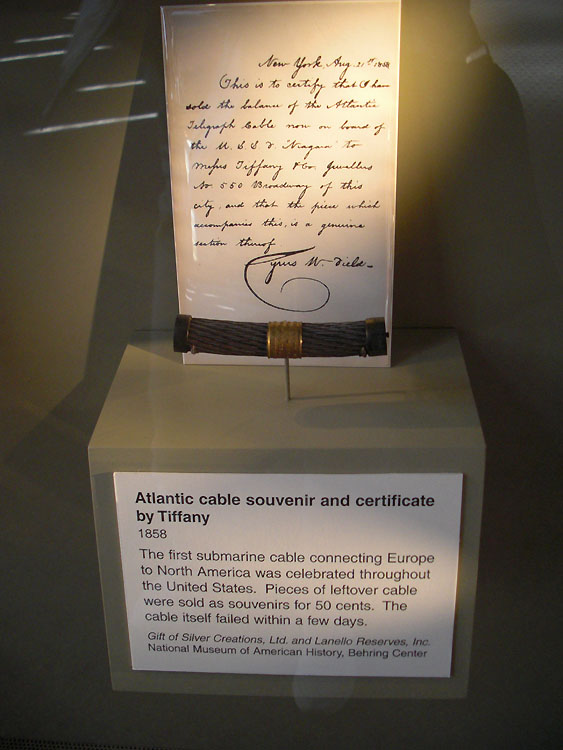 New York, Aug. 21st 1858
This is to certify that I have
sold the balance of the Atlantic
Telegraph Cable now on board of
the U. S. S. F. "Niagara" to
Messrs Tiffany & Co. Jewellers
No. 550 Broadway of this
city, and that the piece which
accompanies this, is a genuine
section thereof
Cyrus W. Field
Atlantic cable souvenir and certificate
by Tiffany
1858
The first submarine cable connecting Europe
to North America was celebrated throughout
the United States. Pieces of leftover cable
were sold as souvenirs for 50 cents. The
cable itself failed within a few days.
Gift of Silver Creations, Ltd. and Lanello Reserves, Inc.
National Museum of American History, Behring Center